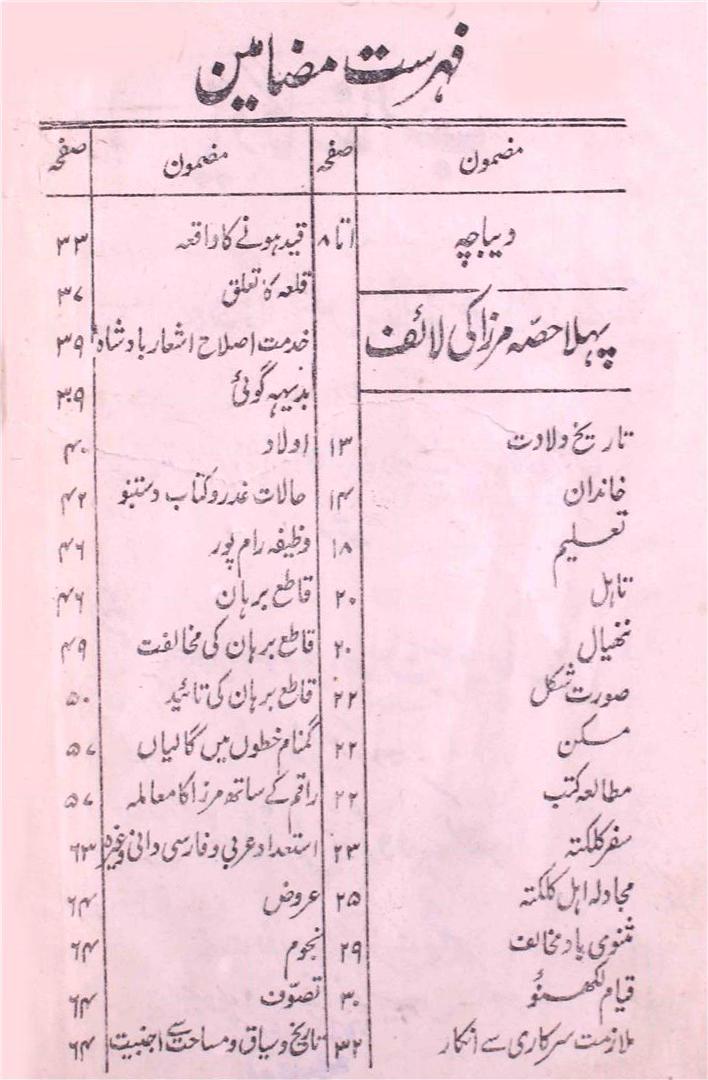 فہرست مضامین
مضمون صفحہ
دیباچہ ۱تا۸
پہلا حصّہ مرزا کی لائف
تاریخ ولادت ۱۳
خاندان ۱۴
تعلیم ۱۸
تاہل ۲۰
ننھیال ۲۰
صورت شکل ۲۲
مسکن ۲۲
مطالعہ کتب ۲۲
سفر کلکتہ ۲۳
مجادلہ اہل کلکتہ ۲۵
مثنوی باد مخالف ۲۹
قیام لکھنؤ ۳۰
ملازمت سرکاری سے انکار ۳۲
مضمون صفحہ
قید ہونے کا واقعہ ۳۳
قلعہ کا تعلق ۳۷
خدمت اصلاح اشعار بادشاہ ۳۹
بدیہہ گوئی ۳۹
اولاد ۴۰
حالات غدر و کتاب دستنبو ۴۲
وظیفہ رام پور ۴۶
قاطع برہان ۴۶
قاطع برہان کی مخالفت ۴۹
قاطع برہان کی تائید ۵۰
گمنام خطوں میں گالیاں ۵۷
راقم کے ساتھ مرزا کا معاملہ ۵۷
استعداد عربی و فارسی دانی وغیرہ ۶۳
عروض ۶۴
نجوم ۶۴
تصوّف ۶۴
تاریخ و سیاق و مساحت سے اجنبیت ۶۴